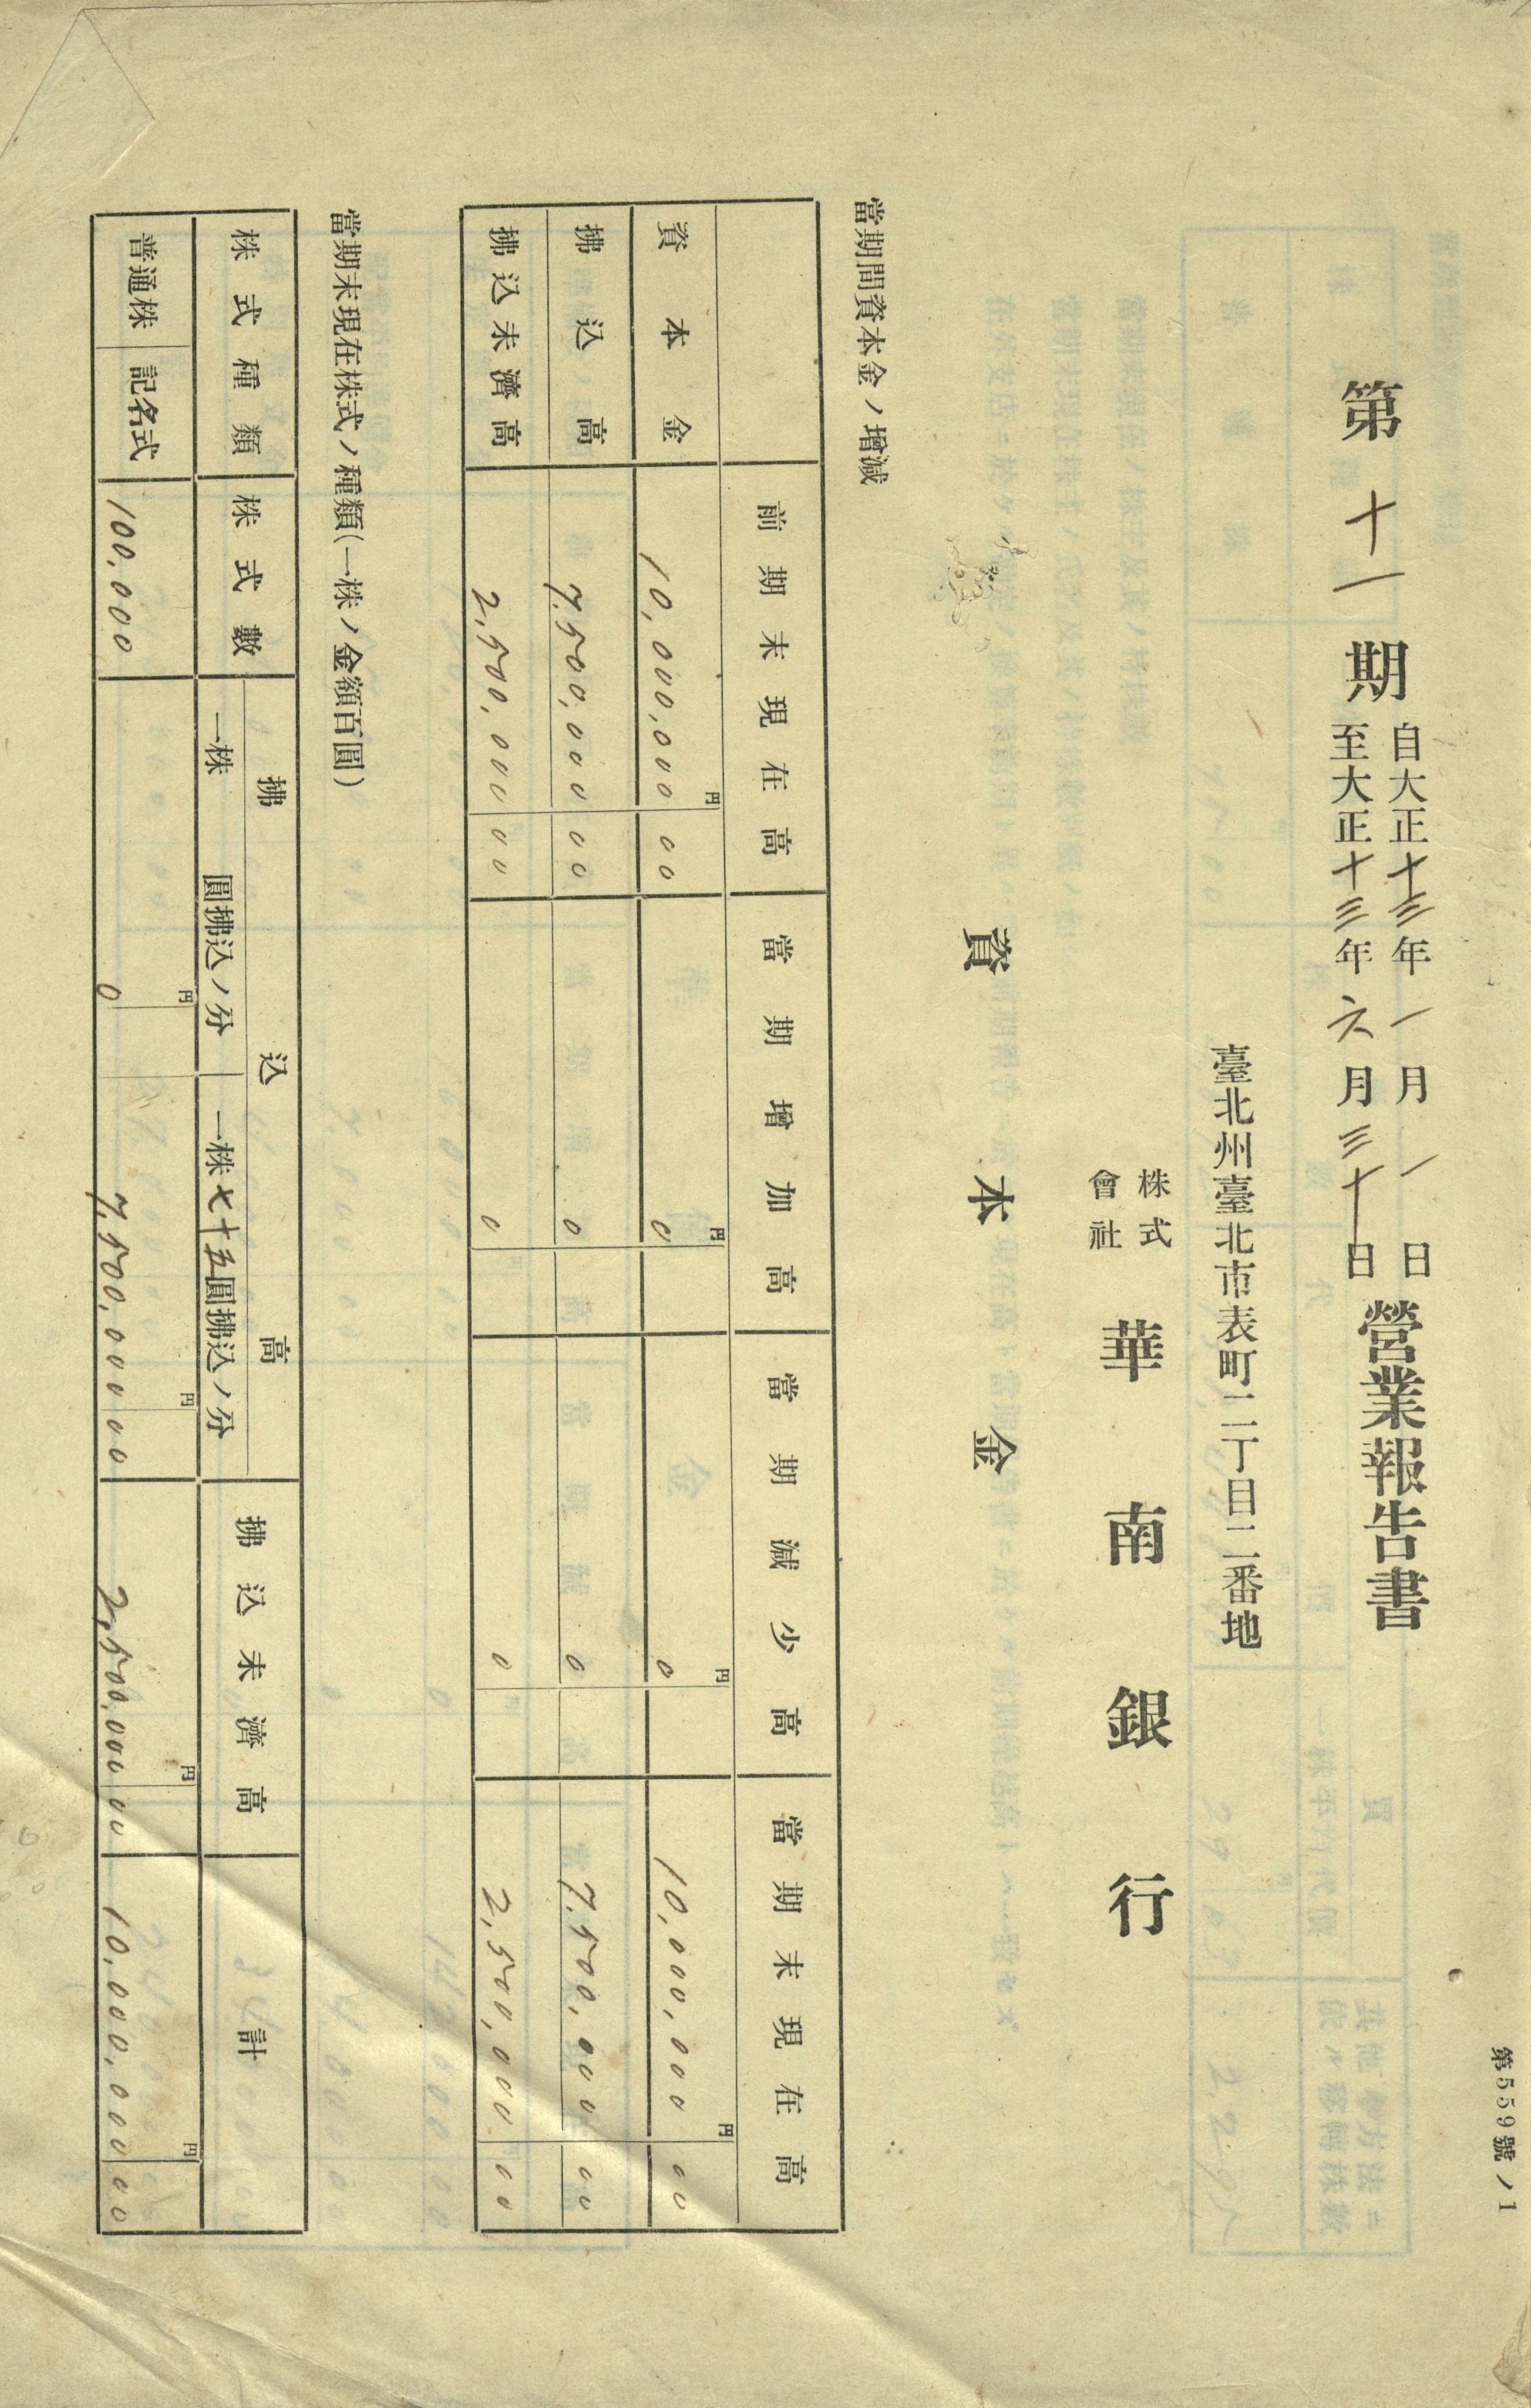 第559號ノ1
第十一期 自大正十三年一月一日 至大正十三年六月三十日 營業報告書
臺北州臺北市表町二丁目二番地
株式會社 華南銀行
資本金
當期間資本金ノ增減
前期末現在高 當期增加高 當期減少高 當期末現在高
資本金 10,000,000 00 円 0 円 0 円 10,000,000 00 円
拂込高 7,500,000 00 0 0 7,500,000 00
拂込未濟高 2,500,000 00 0 0 2,500,000 00
當期末現在株式ノ種類(一株ノ金額百圓)
株式種類 株式數 拂込高 拂込未濟高 計
一株 圓拂込ノ分 一株七十五圓拂込ノ分
普通株 記名式 100,000 0 円 7,500,000 00 円 2,500,000 00 円 10,000,000 00 円